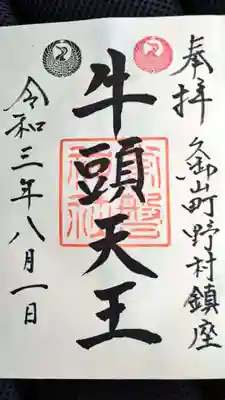 奉拝
久御山町野村鎮座
牛頭天王
令和三年八月一日